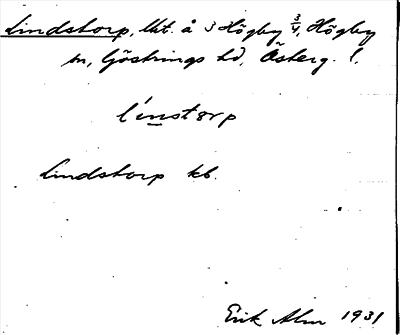 Lindstorp, Utt. å 3 Högby 3/4, Högby
sn, Göstrings hd, Österg. l.
línstorp
Lindstorp kb.
Erik Alm 1931